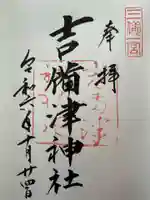 奉拝
三備一宮
吉備津神社
令和六年十月廿四日